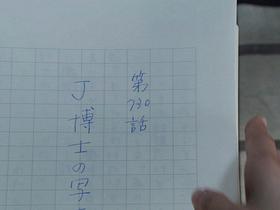 第730話
J博士の写